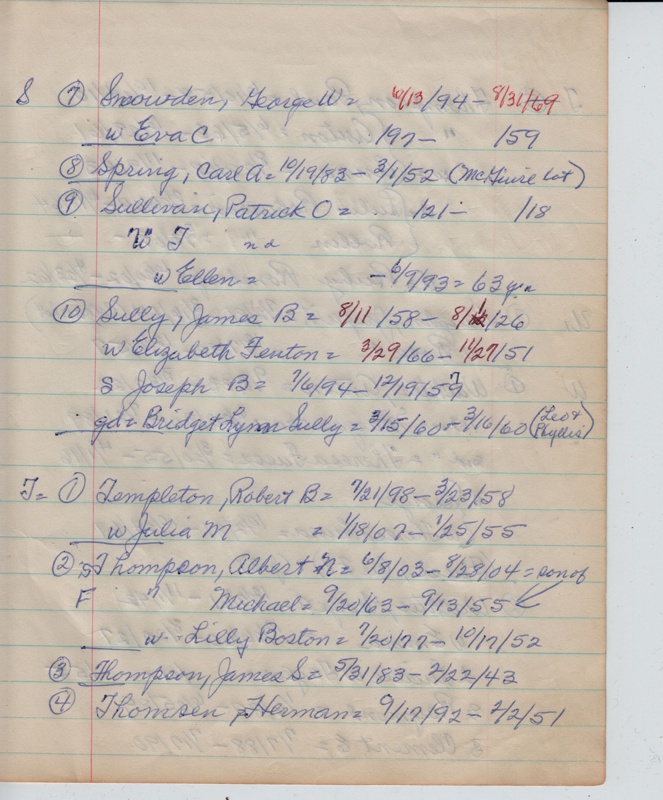 S ⑦ Snowden, George W = 6/13/94 - 8/31/69
w Eva C /97 - /59
⑧ Spring, Carl A = 10/19/83 - 3/1/52 (McGuire lot)
⑨ Sullivan, Patrick O = /21 - /18
W J nd
w Ellen = - 6/9/93 = 63 yr
⑩ Sully, James B = 8/11/58 - /26
w Elizabeth Fenton = 3/29/66 - 11/27/51
s Joseph B = 7/6/94 - 12/19/59
gd = Bridget Lynn Sully = 3/15/60 - 3/16/60 (Leo + Phyllis)
T = ① Templeton, Robert B = 7/21/98 - 3/23/58
w Julia M = 1/18/07 - 1/25/55
② S Thompson, Albert N = 6/8/03 - 8/28/04 = son of
F " Michael = 9/20/63 - 9/13/55
w - Lilly Boston = 7/20/77 - 10/17/52
③ Thompson, James S = 5/31/83 - 2/22/43
④ Thomsen, Herman = 9/17/92 - 2/2/51